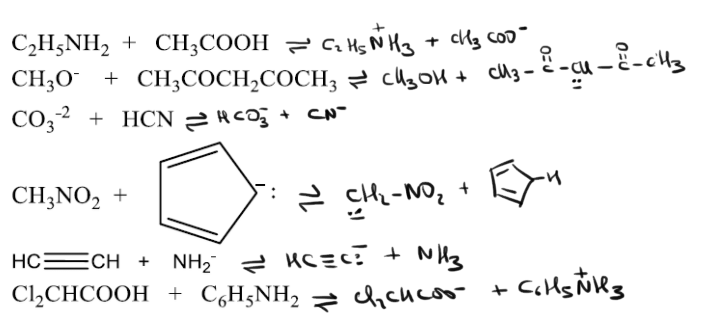 C₂H₅NH₂ + CH₃COOH ⇌ C₂H₅N⁺H₃ + CH₃COO⁻
CH₃O⁻ + CH₃COCH₂COCH₃ ⇌ CH₃OH + CH₃-C(=O)-C̤H-C(=O)-CH₃
CO₃⁻² + HCN ⇌ HCO₃⁻ + CN⁻
CH₃NO₂ + ⁻: ⇌ C̤H₂-NO₂ + -H
HC≡CH + NH₂⁻ ⇌ HC≡C:⁻ + NH₃
Cl₂CHCOOH + C₆H₅NH₂ ⇌ Cl₂CHCOO⁻ + C₆H₅N⁺H₃